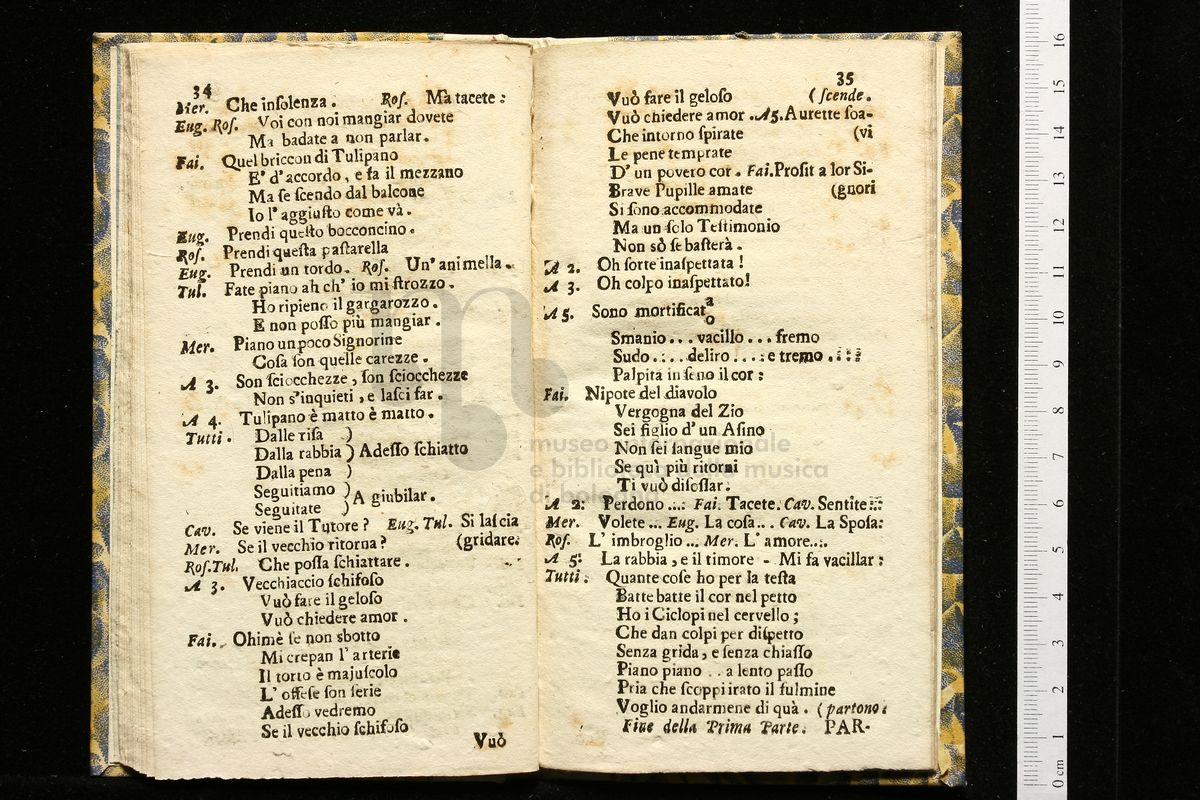 34
Mer. Che inſolenza. Roſ. Ma tacete:
Eug. Roſ. Voi con noi mangiar dovete
Ma badate a non parlar.
Fai. Quel briccon di Tulipano
E' d'accordo, e fa il mezzano
Ma ſe ſcendo dal balcone
Io l'aggiuſto come và.
Eug. Prendi queſto bocconcino.
Roſ. Prendi queſta paſtarella
Eug. Prendi un tordo. Roſ. Un' animella.
Tul. Fate piano ah ch' io mi ſtrozzo.
Ho ripieno il gargarozzo.
E non poſſo più mangiar.
Mer. Piano un poco Signorine
Coſa ſon quelle carezze.
A 3. Son ſciocchezze, ſon ſciocchezze
Non s'inquieti, e laſci far.
A 4. Tulipano è matto è matto.
Tutti. Dalle riſa )
Dalla rabbia ) Adeſſo ſchiatto
Dalla pena )
Seguitiamo ) A giubilar.
Seguitate )
Cav. Se viene il Tutore? Eug. Tul. Si laſcia
Mer. Se il vecchio ritorna? (gridare.
Roſ. Tul. Che poſſa ſchiattare.
A 3. Vecchiaccio ſchifoſo
Vuò fare il geloſo
Vuò chiedere amor.
Fai. Ohimè ſe non sbotto
Mi crepan l'arterie
Il torto è majuſcolo
L' offeſe ſon ſerie
Adeſſo vedremo
Se il vecchio ſchifoſo
Vuò
35
Vuò fare il geloſo (ſcende.
Vuò chiedere amor. A 5. Aurette ſoa-
Che intorno ſpirate (vi
Le pene temprate
D' un povero cor. Fai. Profit a lor Si-
Brave Pupille amate (gnori
Si ſono accommodate
Ma un ſolo Teſtimonio
Non sò ſe baſterà.
A 2. Oh ſorte inaſpettata!
A 3. Oh colpo inaſpettato!
A 5. Sono mortificat a o
Smanio... vacillo... fremo
Sudo.:..deliro....:e tremo.:::
Palpita in ſeno il cor:
Fai. Nipote del diavolo
Vergogna del Zio
Sei figlio d' un Aſino
Non ſei ſangue mio
Se quì più ritorni
Ti vuò diſoſſar.
A 2: Perdono...: Fai. Tacete. Cav. Sentite:::
Mer. Volete... Eug. La coſa... Cav. La Spoſa:
Roſ. L' imbroglio... Mer. L' amore..:.
A 5: La rabbia, e il timore - Mi fa vacillar:
Tutti. Quante coſe ho per la teſta
Batte batte il cor nel petto
Ho i Ciclopi nel cervello;
Che dan colpi per diſpetto
Senza grida, e ſenza chiaſſo
Piano piano .. a lento paſſo
Pria che ſcoppi irato il fulmine
Voglio andarmene di quà. (partono.
Fine della Prima Parte. PAR-
museo internazionale
e biblioteca della musica
di bologna
0 cm 1 2 3 4 5 6 7 8 9 10 11 12 13 14 15 16